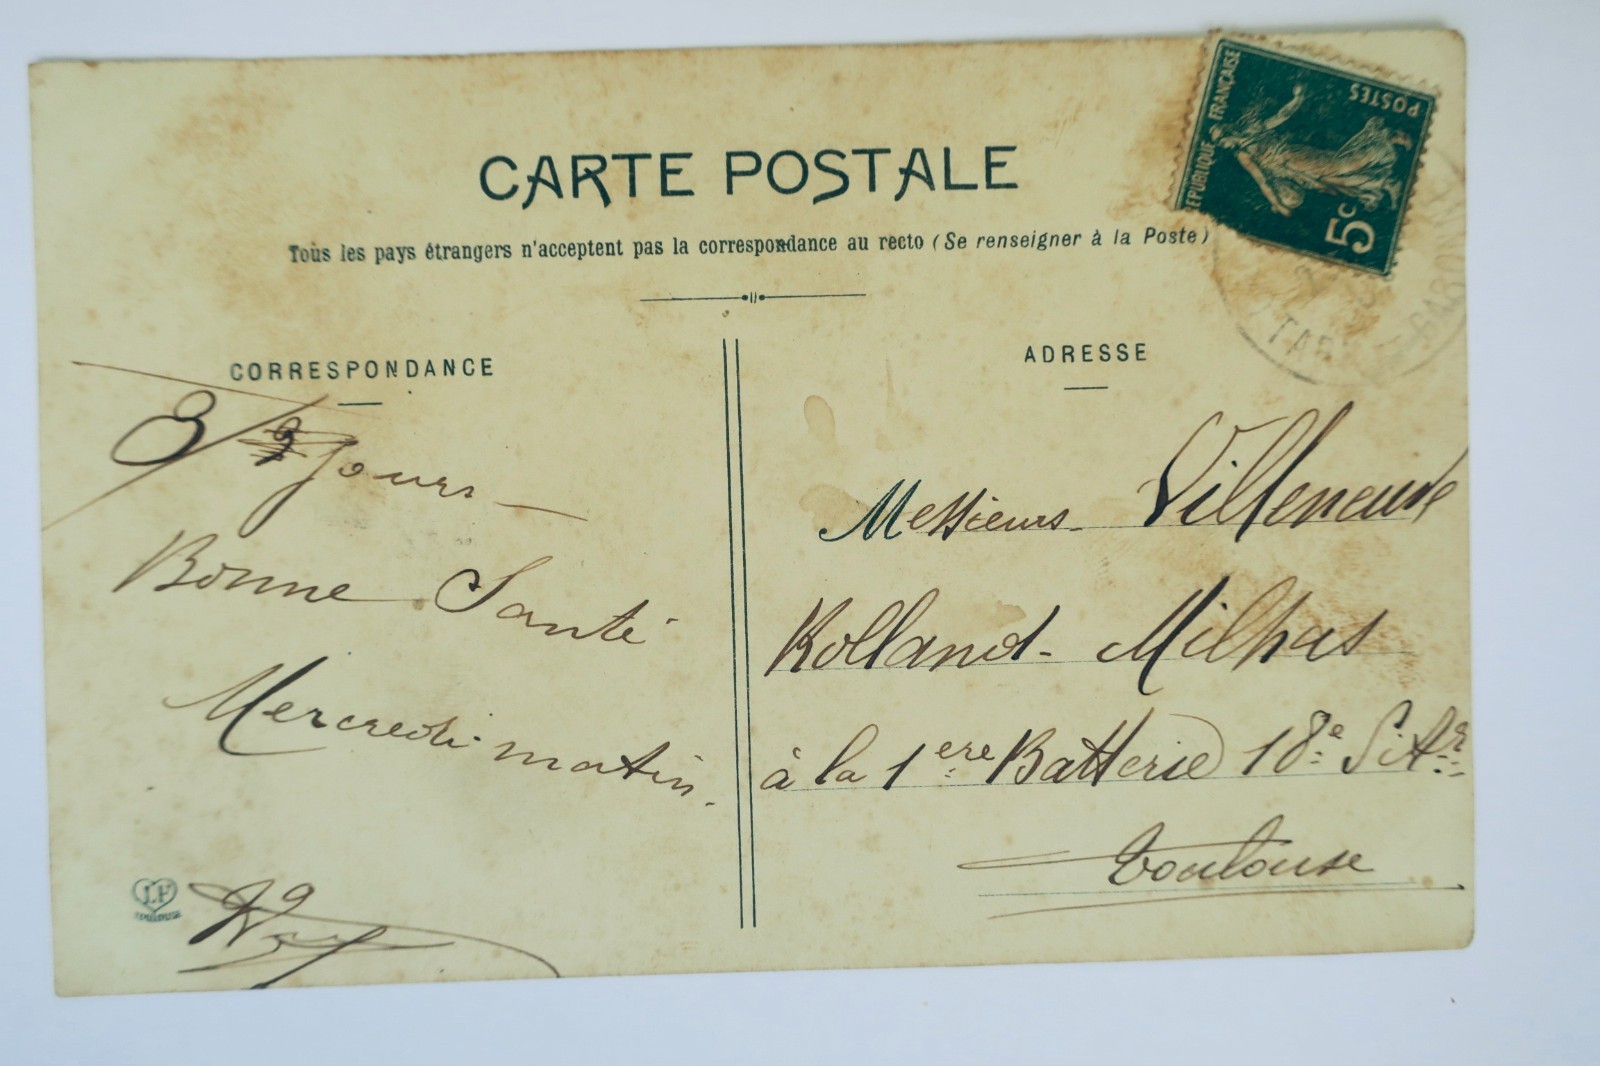 CARTE POSTALE
Tous les pays étrangers n'acceptent pas la correspondance au recto (Se renseigner à la Poste)
REPUBLIQUE FRANÇAISE
POSTES
5c
GARONNE
CORRESPONDANCE
Jours
Bonne Santé
Mercredi matin.
TOULOUSE
ADRESSE
Messieurs Villeneuve
Rolland - Milhas
à la 1ere Batterie 18e
Toulouse